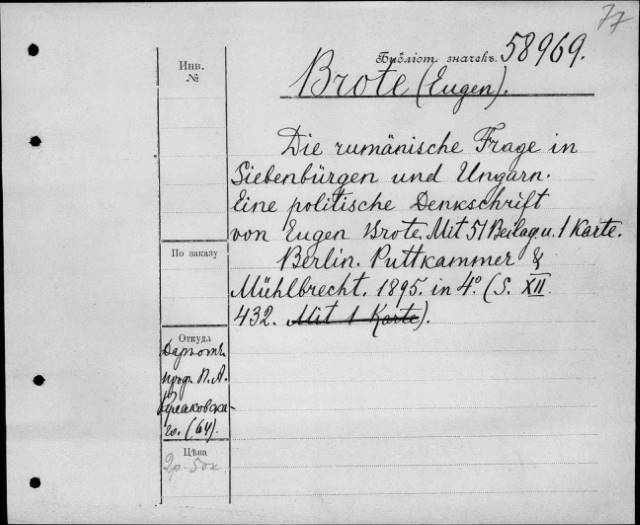 77
Библіот. значекъ. 58969.
Инв.
№
Brote (Eugen).
Die rumänische Frage in
Siebenbürgen und Ungarn.
Eine politische Denkschrift
von Eugen Brote. Mit 51 Beilag u. 1 Karte.
Berlin. Puttkammer &
Mühlbrecht. 1895. in 4º (S. XII
432. Mit 1 Karte).
По заказу
Откуда
проф. П. А.
Кулаковска-
го. (64).
Цѣна
2р-50к